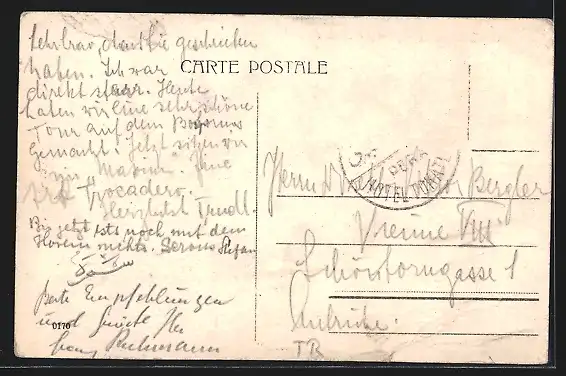 CARTE POSTALE
Sehr brav, dass Sie geschrieben
haben. Ich war
direkt starr. Heute
haben wir eine sehr schöne
Tour auf dem Bosporus
gemacht. Jetzt sitzen wir
im "Maxim". Eine
Art Trocadero.
Herzlichst Trudl.
Bis jetzt ists noch mit dem
Harem nichts. Servus Stefan
Beste Empfehlungen
und Grüsse Ihr
Georg
0170
PERA
Herrn Viktor Bergler
Vienne VIII
Schönborngasse 1
Autriche.
TR